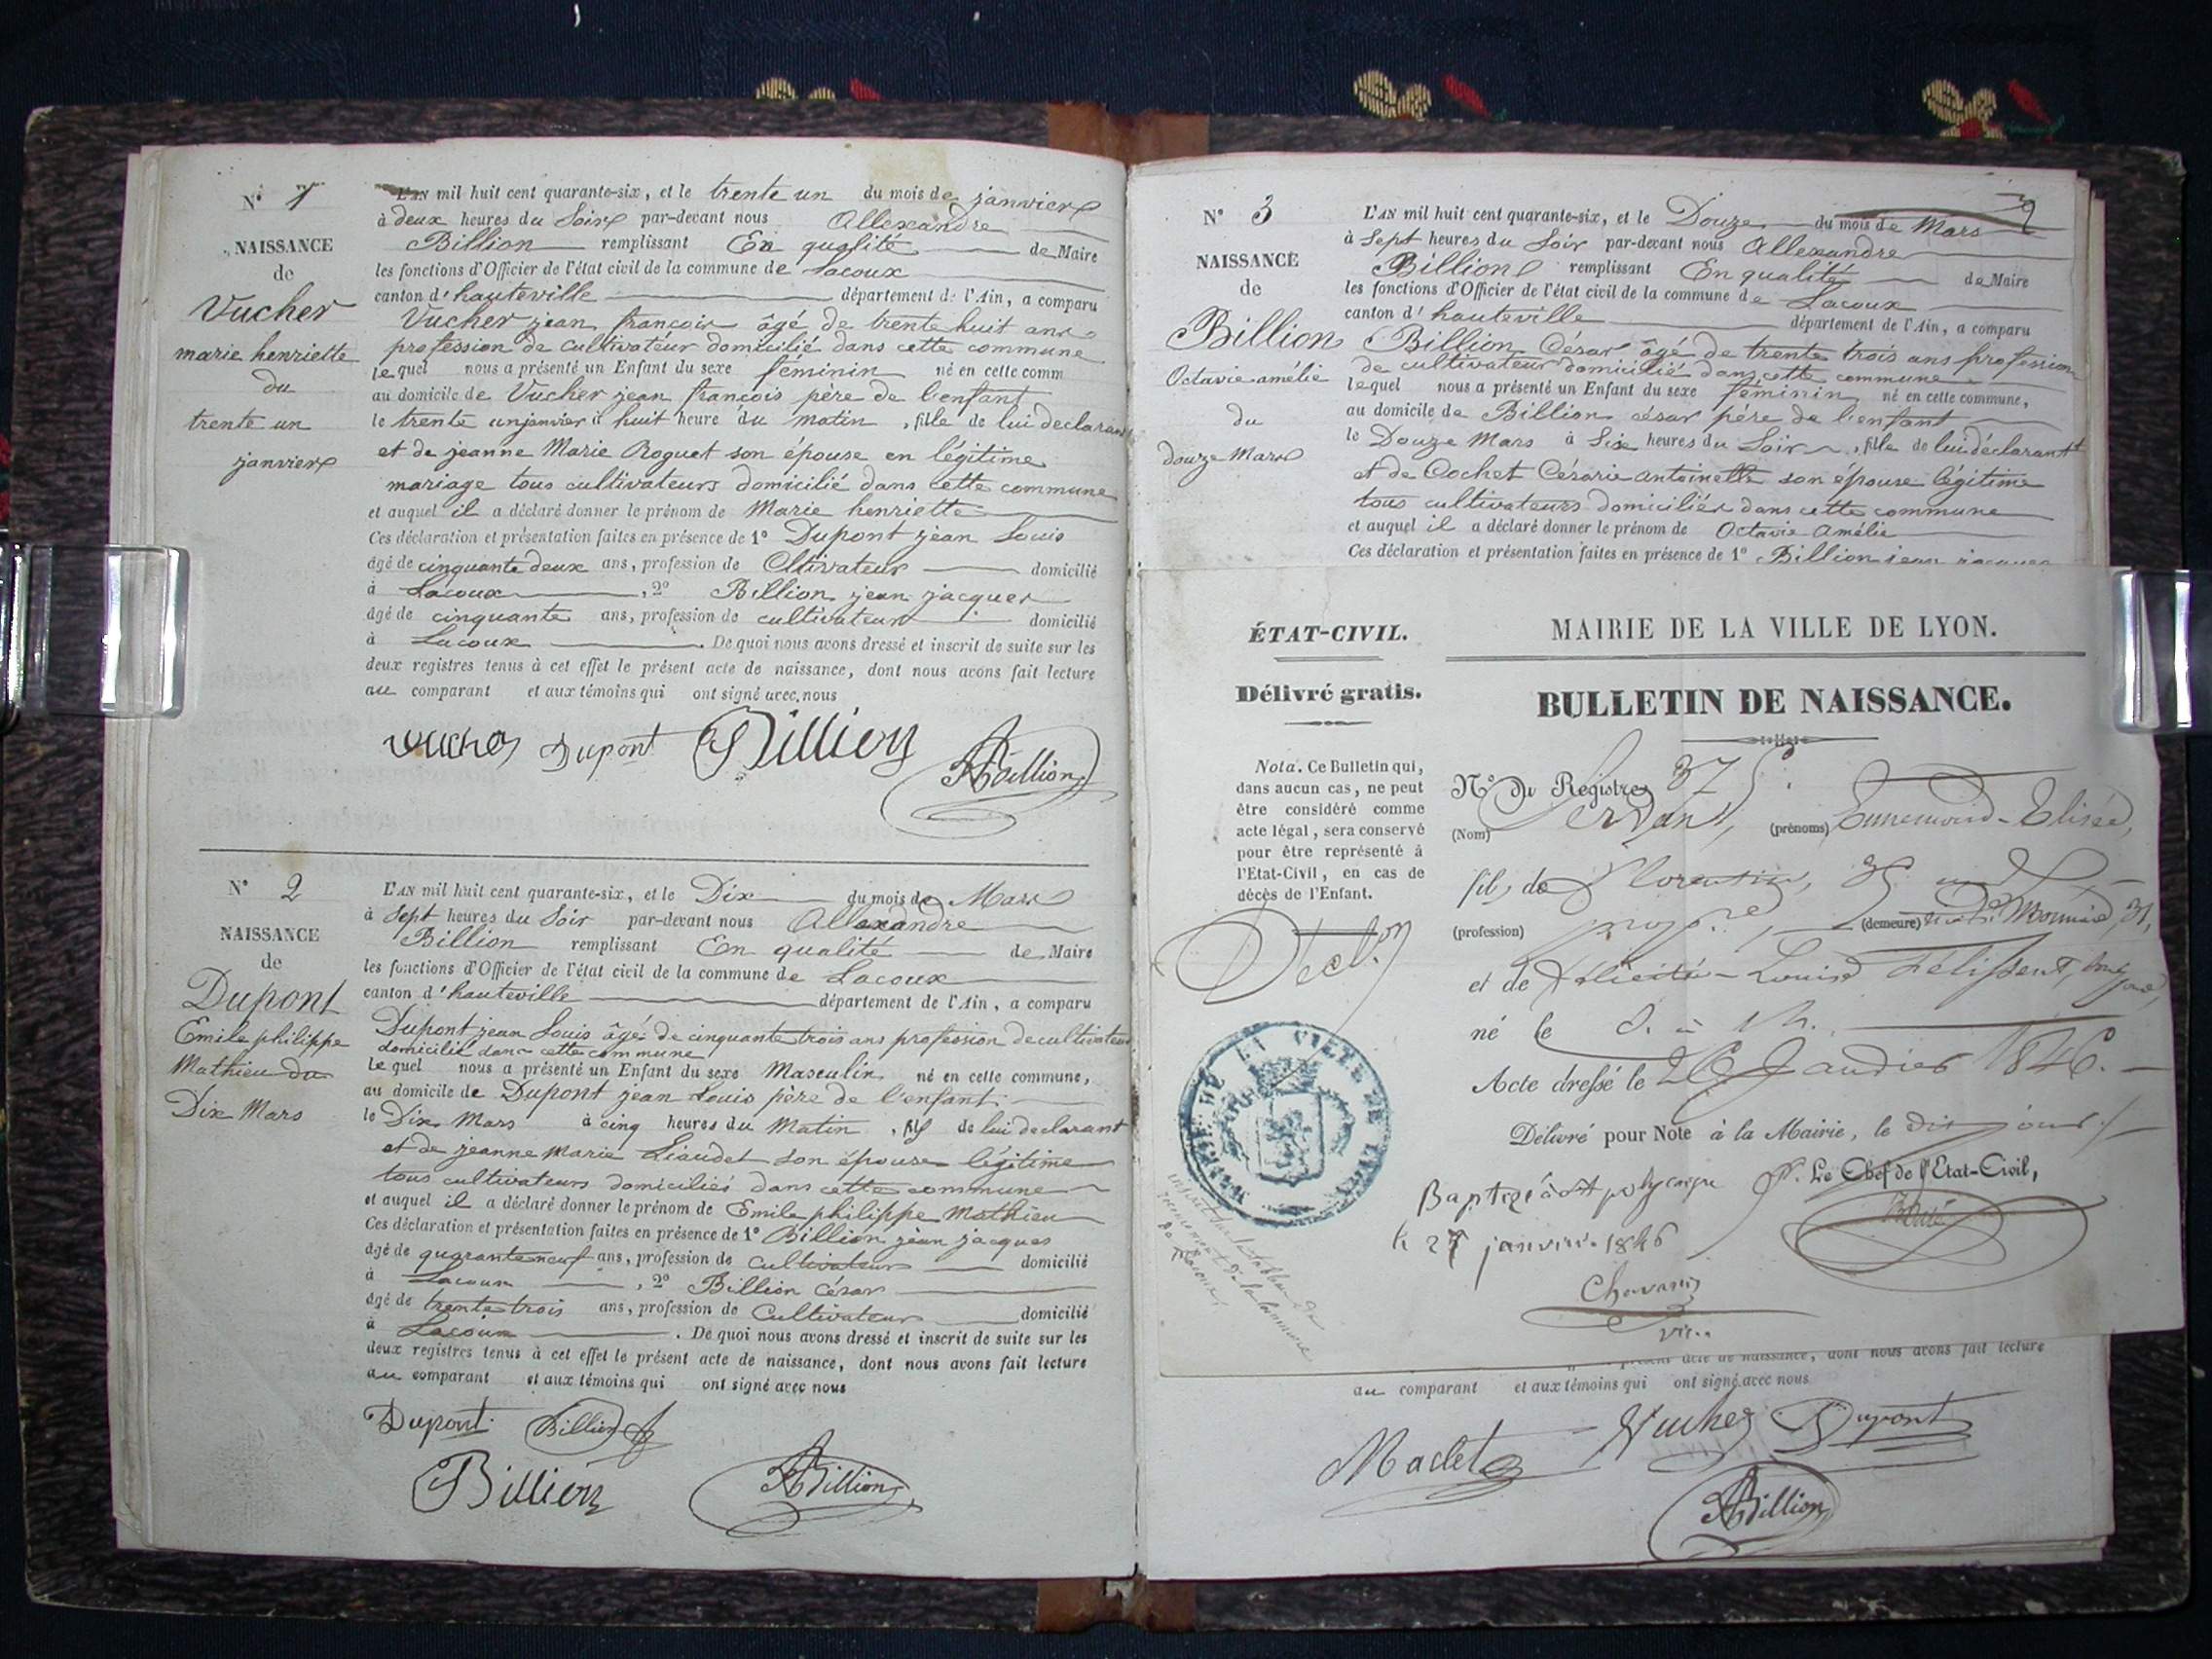 N° 1
NAISSANCE
de
Vucher
marie henriette
du
trente un
janvier
L'AN mil huit cent quarante-six, et le trente un du mois de janvier
à deux heures du Soir par-devant nous Allexandre
Billion remplissant En qualité de Maire
les fonctions d'Officier de l'état civil de la commune de Lacoux
canton d'hauteville département de l'Ain, a comparu
Vucher jean françois âgé de trente huit ans
profession de cultivateur domicilié dans cette commune
lequel nous a présenté un Enfant du sexe féminin né en cette comm
au domicile de Vucher jean françois père de l'enfant
le trente un janvier à huit heure du matin, fille de lui declarant
et de jeanne Marie Roguet son épouse en légitime
mariage tous cultivateurs domicilié dans cette commune
et auquel il a déclaré donner le prénom de Marie henriette
Ces déclaration et présentation faites en présence de 1° Dupont jean Louis
âgé de cinquante deux ans, profession de Cltivateur domicilié
à Lacoux, 2° Billion jean jacques
âgé de cinquante ans, profession de cultivateur domicilié
à Lacoux. De quoi nous avons dressé et inscrit de suite sur les
deux registres tenus à cet effet le présent acte de naissance, dont nous avons fait lecture
au comparant et aux témoins qui ont signé avec nous
Vucher Dupont Billion
ABillion
N° 2
NAISSANCE
de
Dupont
Emile philippe
Mathieu du
Dix Mars
L'AN mil huit cent quarante-six, et le Dix du mois de Mars
à Sept heures du Soir par-devant nous Allexandre
Billion remplissant En qualité de Maire
les fonctions d'Officier de l'état civil de la commune de Lacoux
canton d'hauteville département de l'Ain, a comparu
Dupont jean Louis âgé de cinquante trois ans profession de cultivateur
domicilié dans cette commune
Lequel nous a présenté un Enfant du sexe Masculin né en cette commune,
au domicile de Dupont jean Louis père de l'enfant
le Dix Mars à cinq heures du Matin, fils de lui declarant
et de jeanne Marie Liaudet son épouse légitime
tous cultivateurs domiciliés dans cette commune
et auquel il a déclaré donner le prénom de Emile philippe Mathieu
Ces déclaration et présentation faites en présence de 1° Billion jean jacques
âgé de quarante neuf ans, profession de cultivateur domicilié
à Lacoux, 2° Billion césar
âgé de trente trois ans, profession de Cultivateur domicilié
à Lacoux. De quoi nous avons dressé et inscrit de suite sur les
deux registres tenus à cet effet le présent acte de naissance, dont nous avons fait lecture
au comparant et aux témoins qui ont signé avec nous
Dupont Billion
Billion ABillion
N° 3
NAISSANCE
de
Billion
Octavie amélie
du
douze Mars
L'AN mil huit cent quarante-six, et le Douze du mois de Mars
à Sept heures du Soir par-devant nous Allexandre
Billion remplissant En qualité de Maire
les fonctions d'Officier de l'état civil de la commune de Lacoux
canton d'hauteville département de l'Ain, a comparu
Billion César âgé de trente trois ans profession
de cultivateur domicilié dans cette commune
lequel nous a présenté un Enfant du sexe féminin né en cette commune,
au domicile de Billion césar père de l'enfant
le Douze Mars à Six heures du Soir, fille de lui déclarant
et de Cochet Césarie antoinette son épouse légitime
tous cultivateurs domiciliés dans cette commune
et auquel il a déclaré donner le prénom de Octavie Amélie
Ces déclaration et présentation faites en présence de 1° Billion jean jacques
ÉTAT-CIVIL.
Délivré gratis.
Nota. Ce Bulletin qui,
dans aucun cas, ne peut
être considéré comme
acte légal, sera conservé
pour être représenté à
l'Etat-Civil, en cas de
décès de l'Enfant.
MAIRIE DE LA VILLE DE LYON.
BULLETIN DE NAISSANCE.
N° du Registre 375
(Nom) Servant, (prénoms) Ennemond-Elisée,
fils de Florentin, 35
(profession) prop.re, (demeure) 31,
et de Félicité-Louise Pélissent,
né le
Acte dressé le 26 Janvier 1846.
Délivré pour Note à la Mairie, le dit jour
P. Le Chef de l'Etat-Civil,
Baptisé à St polycarpe
le 27 janvier 1846
Chavanis
vic.
MAIRIE DE LA VILLE DE LYON
présent acte de naissance, dont nous avons fait lecture
au comparant et aux témoins qui ont signé avec nous
Maclet Vucher Dupont
ABillion